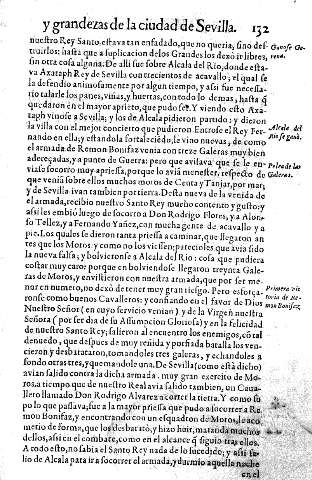 y grandezas de la ciudad de Sevilla. 132
nuestro Rey Santo estava tan enfadado, que no queria, sino des-
truirlos: hasta que a suplicacion de los Grandes los dexò ir libres,
sin otra cosa alguna. De alli fue sobre Alcala del Rio, donde esta-
va Axataph Rey de Sevilla con trecientos de acavallo; el qual se
la defendio animosamente por algun tiempo, y assi fue necessa-
rio talarle los panes, viñas, y huertas, con todo lo demas, hasta q̃
quedarõ en el mayor aprieto, que pudo ser. Y viendo esto Axa-
taph vinose a Sevilla; y los de Alcala pidieron partido; y dieron
la villa con el mejor concierto que pudieron. Entrose el Rey Fer-
nando en ella; y estandola fortaleciendo, le vino nueva, de como
el armada de Remon Bonifaz venia con treze Galeras muy bien
adereçadas, y a punto de Guerra: pero que avisava que se le en-
viasse socorro muy apriessa, porque lo avia menester, respecto de
que venia sobre ellos muchos moros de Ceuta y Tanjar, por mar;
y de Sevilla ivan tambien por tierra. Desta nueva de la venida de
el armada, recibio nuestro Santo Rey mucho contento y gusto: y
assi les embiò luego de socorro a Don Rodrigo Flores, y a Alon-
so Tellez, y a Fernando Yañez, con mucha gente de acavallo y a
pie. Los quales se dieron tanta priessa a caminar, que llegaron an
tes que los Moros: y como no los viessen; parecioles que avia sido
la nueva falsa; y bolvieronse a Alcala del Rio: cosa que pudiera
costar muy caro: porque en bolviendose llegaron treynta Gale-
ras de Moros, y envistieron con nuestra armada, que por ser me-
nor en numero, no dexò de tener muy gran riesgo. Pero esforça-
ronse como buenos Cavalleros: y confiando en el favor de Dios
Nuestro Señor (en cuyo servicio venian) y de la Virgẽ nuestra
Señora (por ser dia de su Assumpcion Gloriosa) y en la felicidad
de nuestro Santo Rey; salieron al encuentro los enemigos, cõ tal
denuedo, que despues de muy reñida y porfiada batalla los ven-
cieron y desbarataron, tomandoles tres galeras, y echandoles a
fondo otras tres, y quemandole una. De Sevilla (como està dicho)
avian salido contra la dicha armada, muy gran exercito de Mo-
ros, a tiempo que de nuestro Real avia salido tambien, un Cava-
llero llamado Don Rodrigo Alvarez a correr la tierra. Y como su
po lo que passava, fue a la mayor priessa que pudo a socorrer a Re
mon Bonifaz, y encontrando con un esquadron de Moros, le aco-
metio de forma, que los desbaratò, y hizo huir, matando muchos
dellos, assi en el combate, como en el alcance q̃ siguio tras ellos.
A todo esto, no sabia el Santo Rey nada de lo sucedido; y assi sa-
lio de Alcala para ir a socorrer el armada, y durmio aquella noche
en el
Ganose Ge-
rena.
Alcala del
Rio se ganò.
Pelea de las
Galeras.
Primera vi-
toria de Re-
mon Bonifaz.